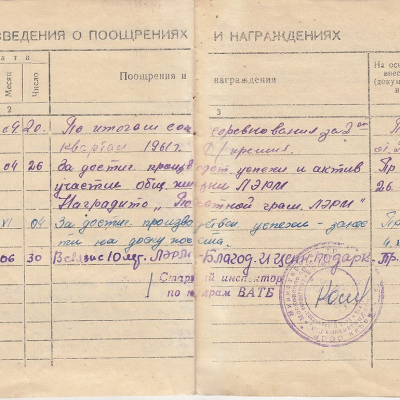 СВЕДЕНИЯ О ПООЩРЕНИЯХ И НАГРАЖДЕНИЯХ
ата
Месяц
Число
Поощрения и награждения
На ос
внес
(доку
и
2 3
04 20. По итогам соц соревнования за 2
квартал 1961г. премия.
04 26 За достиг. производст. успехи и актив
участие общ. жизни ЛЭРМ 26.
Наградить грам. ЛЭРМ"
VI 04 За достиг. производственной успехи - занес
ти на доску почета.
06 30 В связи с 10 лет. ЛЭРМ - Благод. и ценн. подарк. Пр.
Старший инспектор
по кадрам ВАТБ